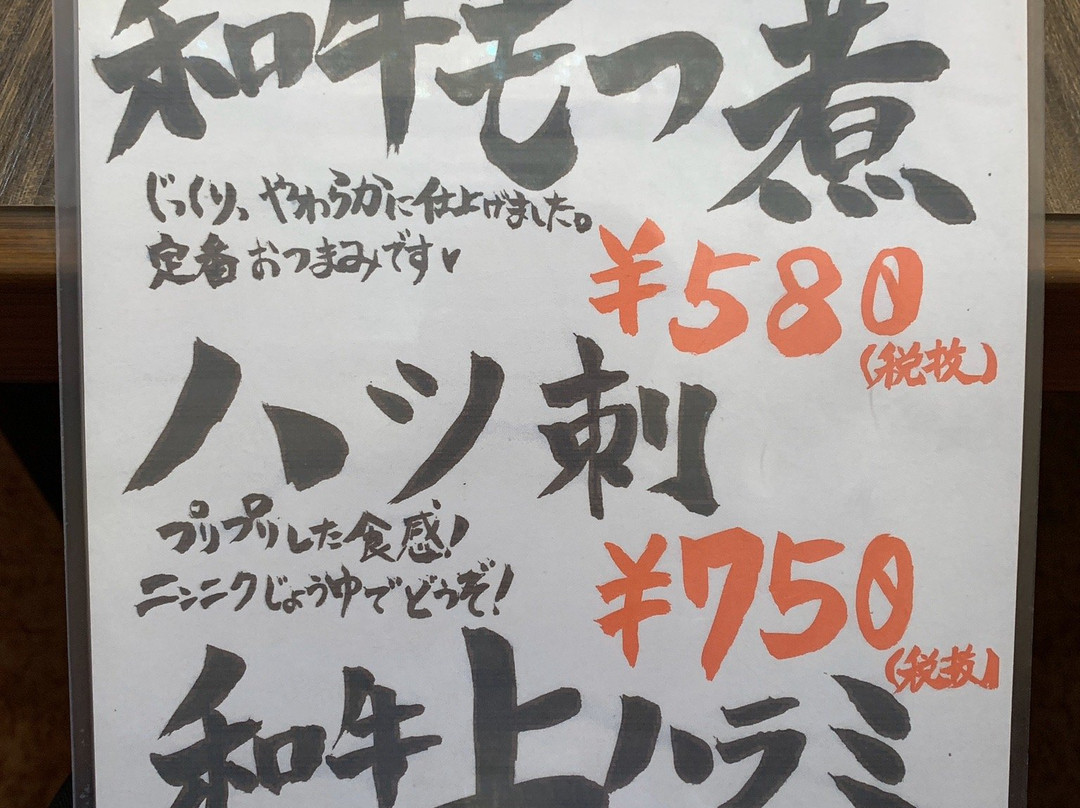 和牛もつ煮
じっくり、やわらかに仕上げました。
定番おつまみです♥
¥580
(税抜)
ハツ刺
プリプリした食感!
ニンニクじょうゆでどうぞ!
¥750
(税抜)
和牛上ハラミ